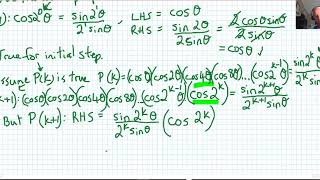 1): cos2⁰θ = sin2'θ / 2'sinθ , LHS = cosθ RHS = sin2θ / 2sinθ = 2cosθsinθ / 2sinθ
= cosθ
True for initial step.
Assume P(k) is true P(k)=(cosθ)(cos2θ)(cos4θ)(cos8θ)...(cos2^(k-1)θ)= sin2^kθ / 2^k sinθ
(k+1): (cosθ)(cos2θ)(cos4θ)(cos8θ)...(cos2^(k-1)θ)(cos2^k) = sin2^(k+1)θ / 2^(k+1) sinθ
But P(k+1): RHS = sin2^kθ / 2^k sinθ (cos 2^k)